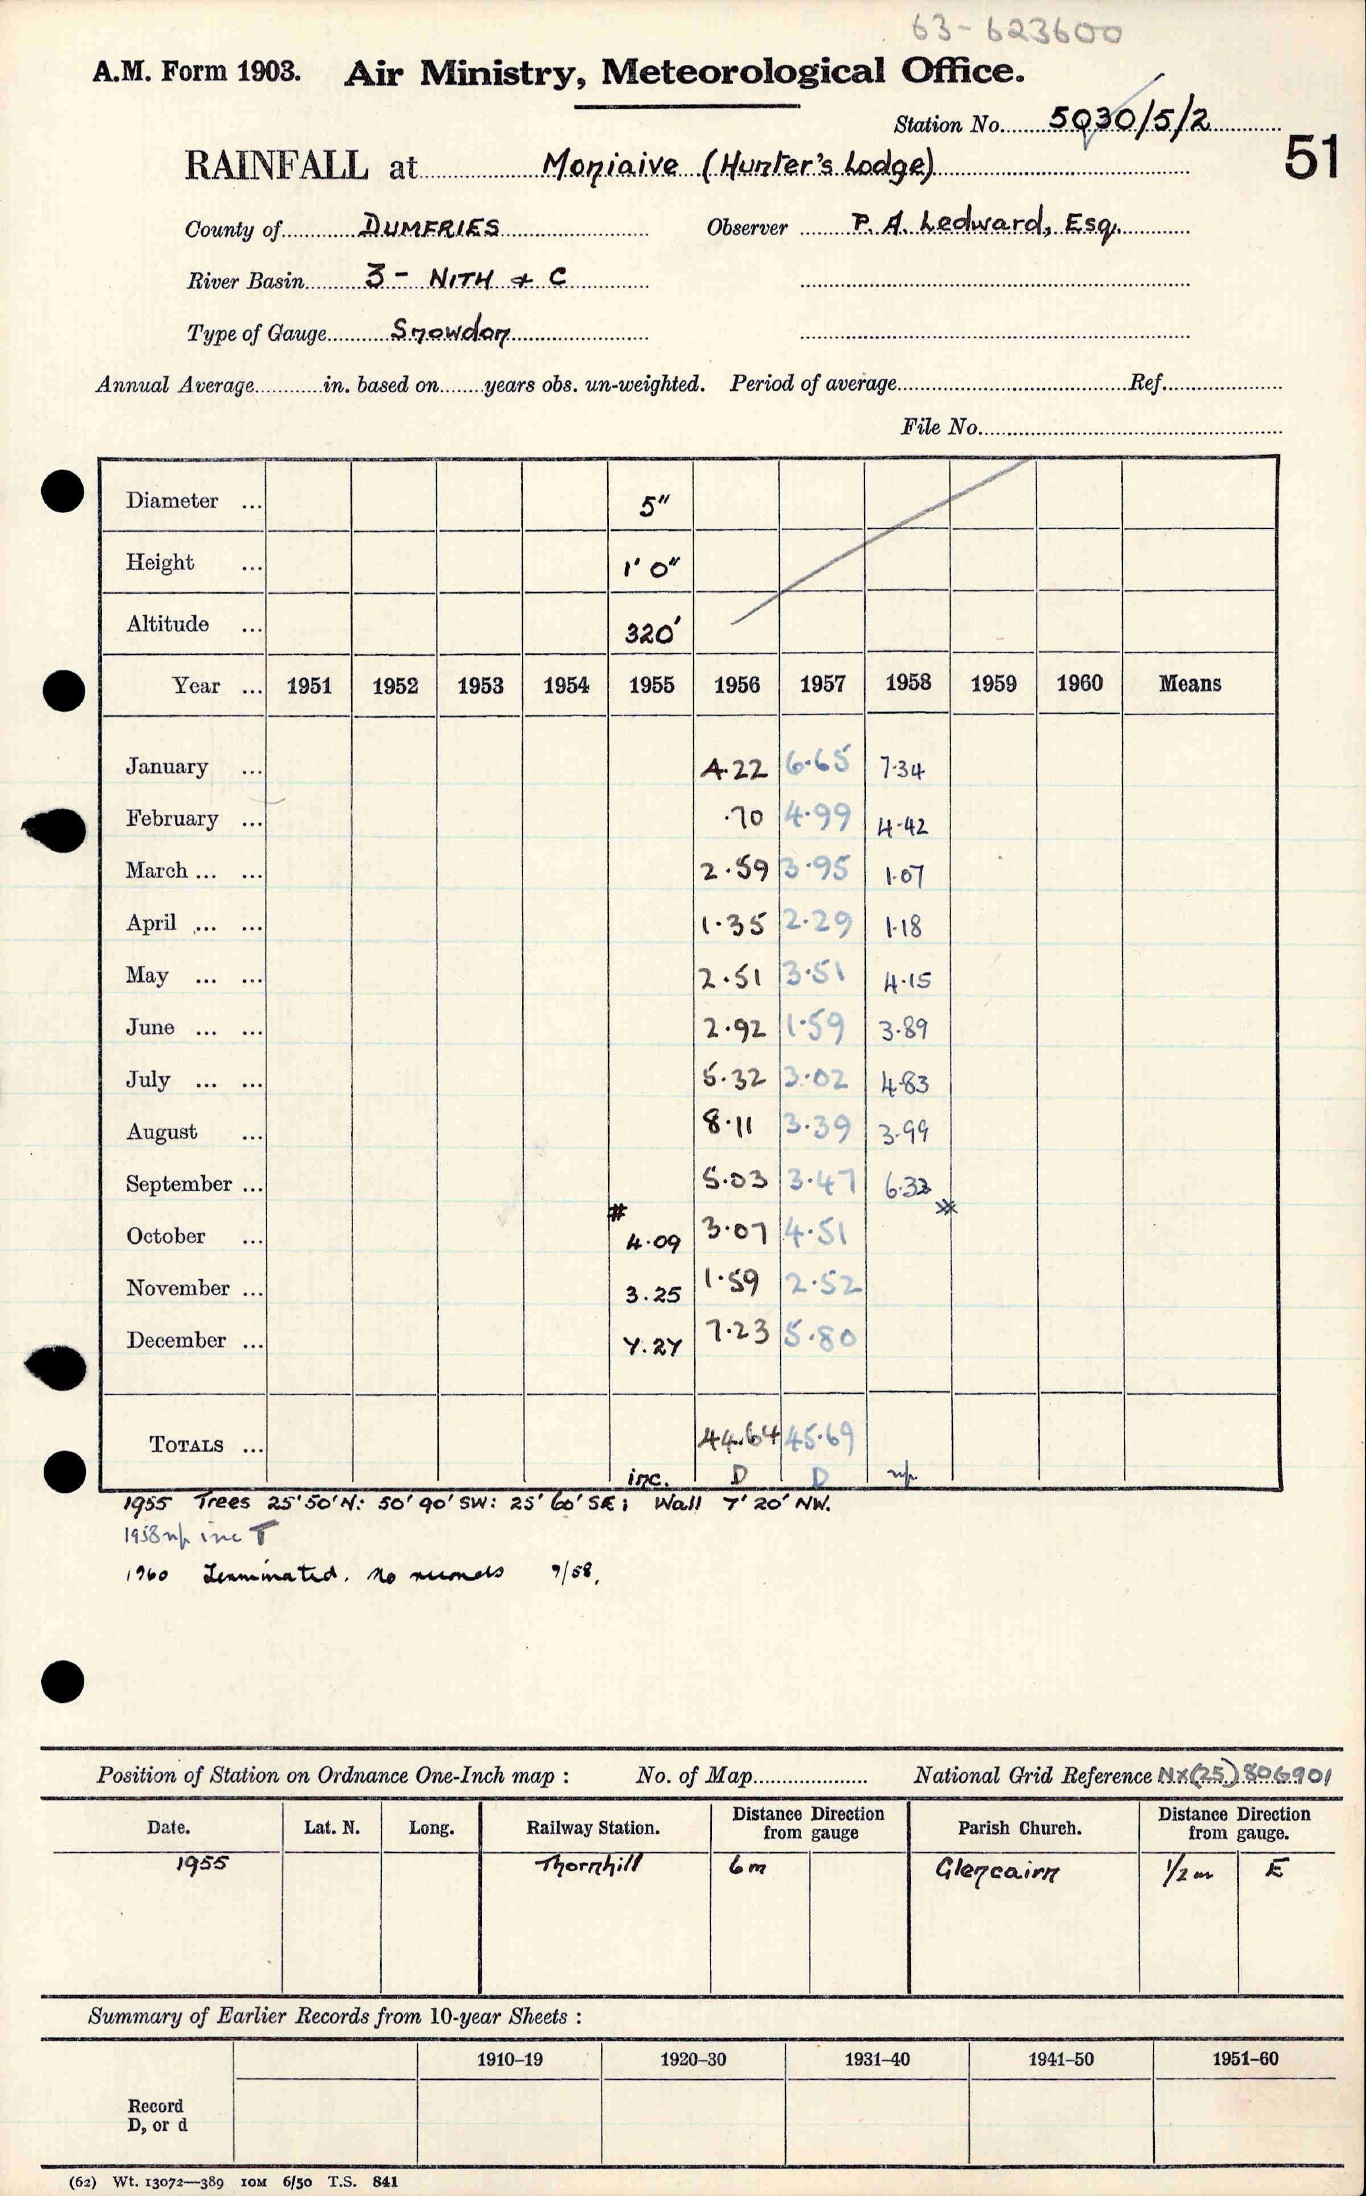 63-623600
A.M. Form 1903. Air Ministry, Meteorological Office.
Station No. 5030/5/2
51
RAINFALL at Moniaive (Hunter's Lodge)
County of DUMFRIES Observer P. A. Ledward, Esq.
River Basin 3 - NITH & C
Type of Gauge Snowdon
Annual Average in. based on years obs. un-weighted. Period of average Ref.
File No.
Diameter ... 5"
Height ... 1' 0"
Altitude ... 320'
Year ... 1951 1952 1953 1954 1955 1956 1957 1958 1959 1960 Means
January ... 4.22 6.65 7.34
February ... .70 4.99 4.42
March ... ... 2.59 3.95 1.07
April ... ... 1.35 2.29 1.18
May ... ... 2.51 3.51 4.15
June ... ... 2.92 1.59 3.89
July ... ... 5.32 3.02 4.83
August ... 8.11 3.39 3.99
September ... 5.03 3.47 6.33
October ... # 4.09 3.07 4.51
November ... 3.25 1.59 2.52
December ... 7.27 7.23 5.80
TOTALS ... 44.64 45.69
inc. D D np
1955 Trees 25' 50' N: 50' 90' SW: 25' 60' SE; Wall 7' 20' NW.
1958 np inc T
1960 Terminated. No records 9/58.
Position of Station on Ordnance One-Inch map : No. of Map National Grid Reference NX(25)806901
Date. Lat. N. Long. Railway Station. Distance Direction from gauge Parish Church. Distance Direction from gauge.
1955 Thornhill 6m Glencairn 1/2 m E
Summary of Earlier Records from 10-year Sheets :
1910–19 1920–30 1931–40 1941–50 1951–60
Record
D, or d
(62) Wt. 13072—389 10M 6/50 T.S. 841